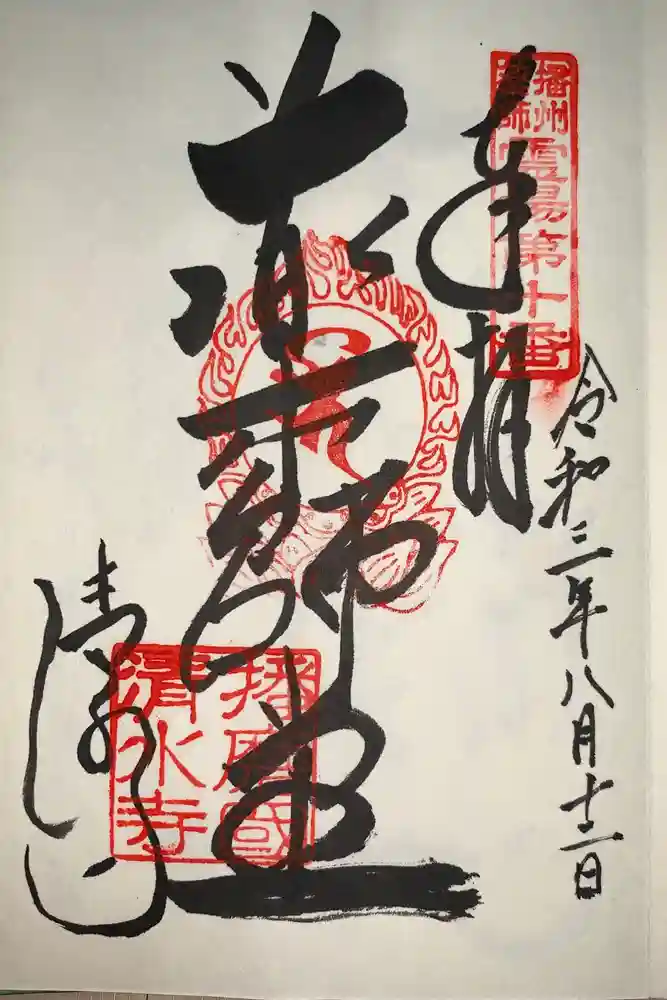 播州
薬師
霊場第十番
奉拝
令和三年八月十二日
薬師堂
播磨國
清水寺
清水寺